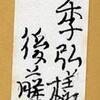 季弘様
後藤